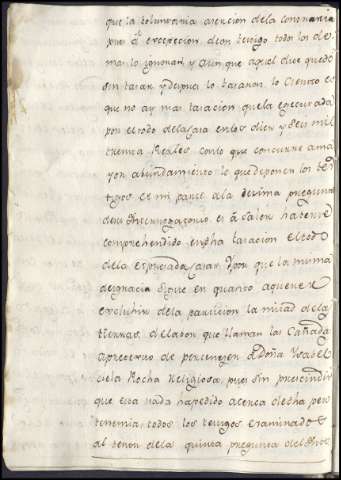 que la boluntaria asercion dela contraria
pues á excepcion deun testigo todos los de
mas lo ignoran, y aun que aquel dice quedó
sin tasar, y despues lo tasaron, lo cierto es
que no ay mas tasacion que la executada
por el todo dela casa en los diez y seis mil
treinta Reales, conlo que concurre a ma
yor abundamiento lo que deponen los tes
tigos de mi parte ala dezima pregunta
desu Interrogatorio, es á saber haberse
comprehendido en dha tasacion el todo
dela expresada casa: Y por que la misma
desgracia sigue en quanto aquerer
excluhir de la particion la mitad de las
tierras, de labor que llaman las Cañadas
apretexto de pertenezer á Doña Ysabel
de la Rocha Religiosa, pues sin prescindir
que esta nada ha pedido acerca de dha per
tenencia, todos los testigos examinados
al tenor dela quinta pregunta del Inte